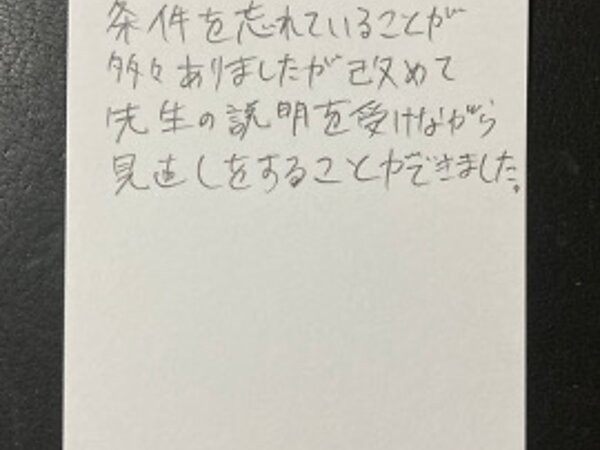 条件を忘れていることが
多々ありましたが改めて
先生の説明を受けながら
見直しをすることができました。